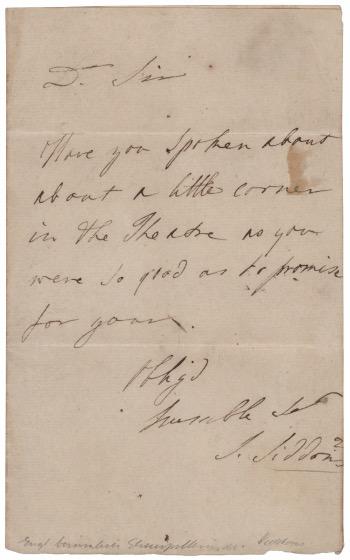 Dr Sir
Have you spoken about
about a little corner
in the Theatre as you
were so good as to promise
for your
Oblig'd
humble Sert
S. Siddons
Siddons